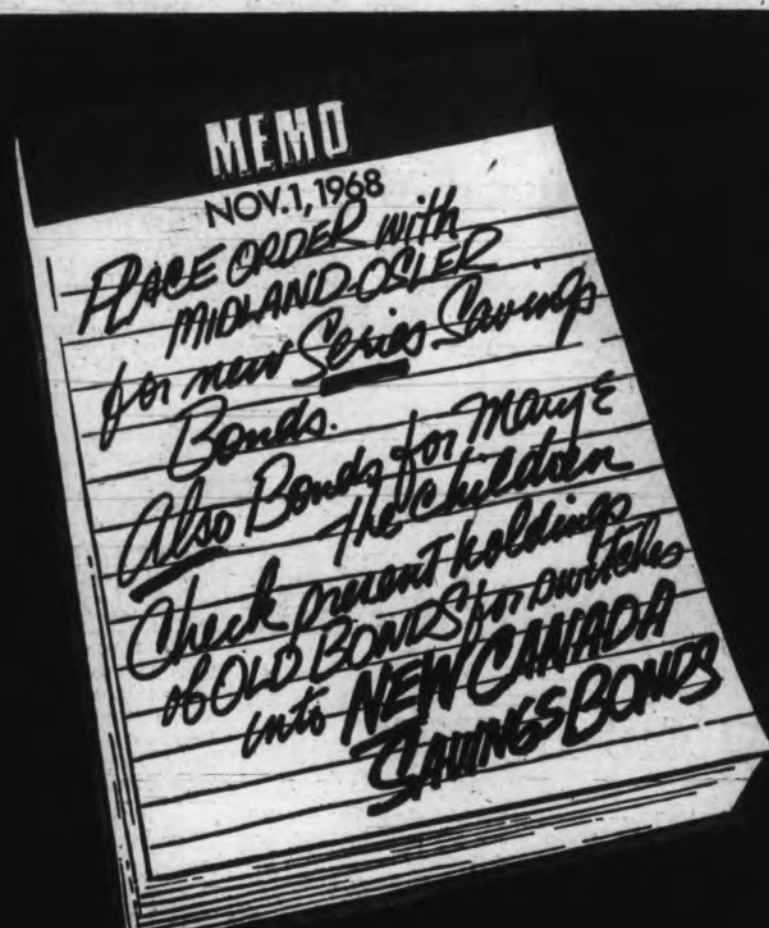 MEMO
NOV. 1, 1968
PLACE ORDER with
MIDLAND-OSLER
for new Series Savings
Bonds.
Also Bonds for Mary &
the children
Check present holdings
of OLD BONDS for switches
into NEW CANADA
SAVINGS BONDS